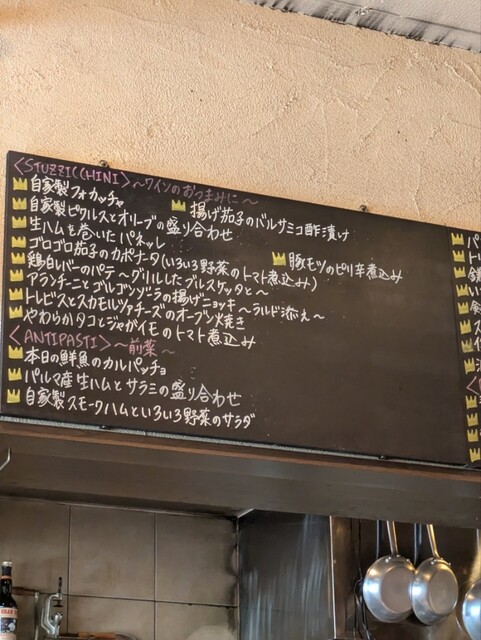 <STUZZICCHINI> ~ワインのおつまみに~
自家製フォカッチャ
揚げ茄子のバルサミコ酢漬け
自家製ピクルスとオリーブの盛り合わせ
生ハムを巻いたパネッレ
ゴロゴロ茄子のカポナータ(いろいろ野菜のトマト煮込み)
豚モツのピリ辛煮込み
鶏白レバーのパテ~グリルしたブルスケッタと~
アランチーニとゴルゴンゾーラの揚げニョッキ~ラルド添え~
トレビスとスカモルツァチーズのオーブン焼き
やわらかタコとジャガイモのトマト煮込み
<ANTIPASTI> ~前菜~
本日の鮮魚のカルパッチョ
パルマ産生ハムとサラミの盛り合わせ
自家製スモークハムといろいろ野菜のサラダ